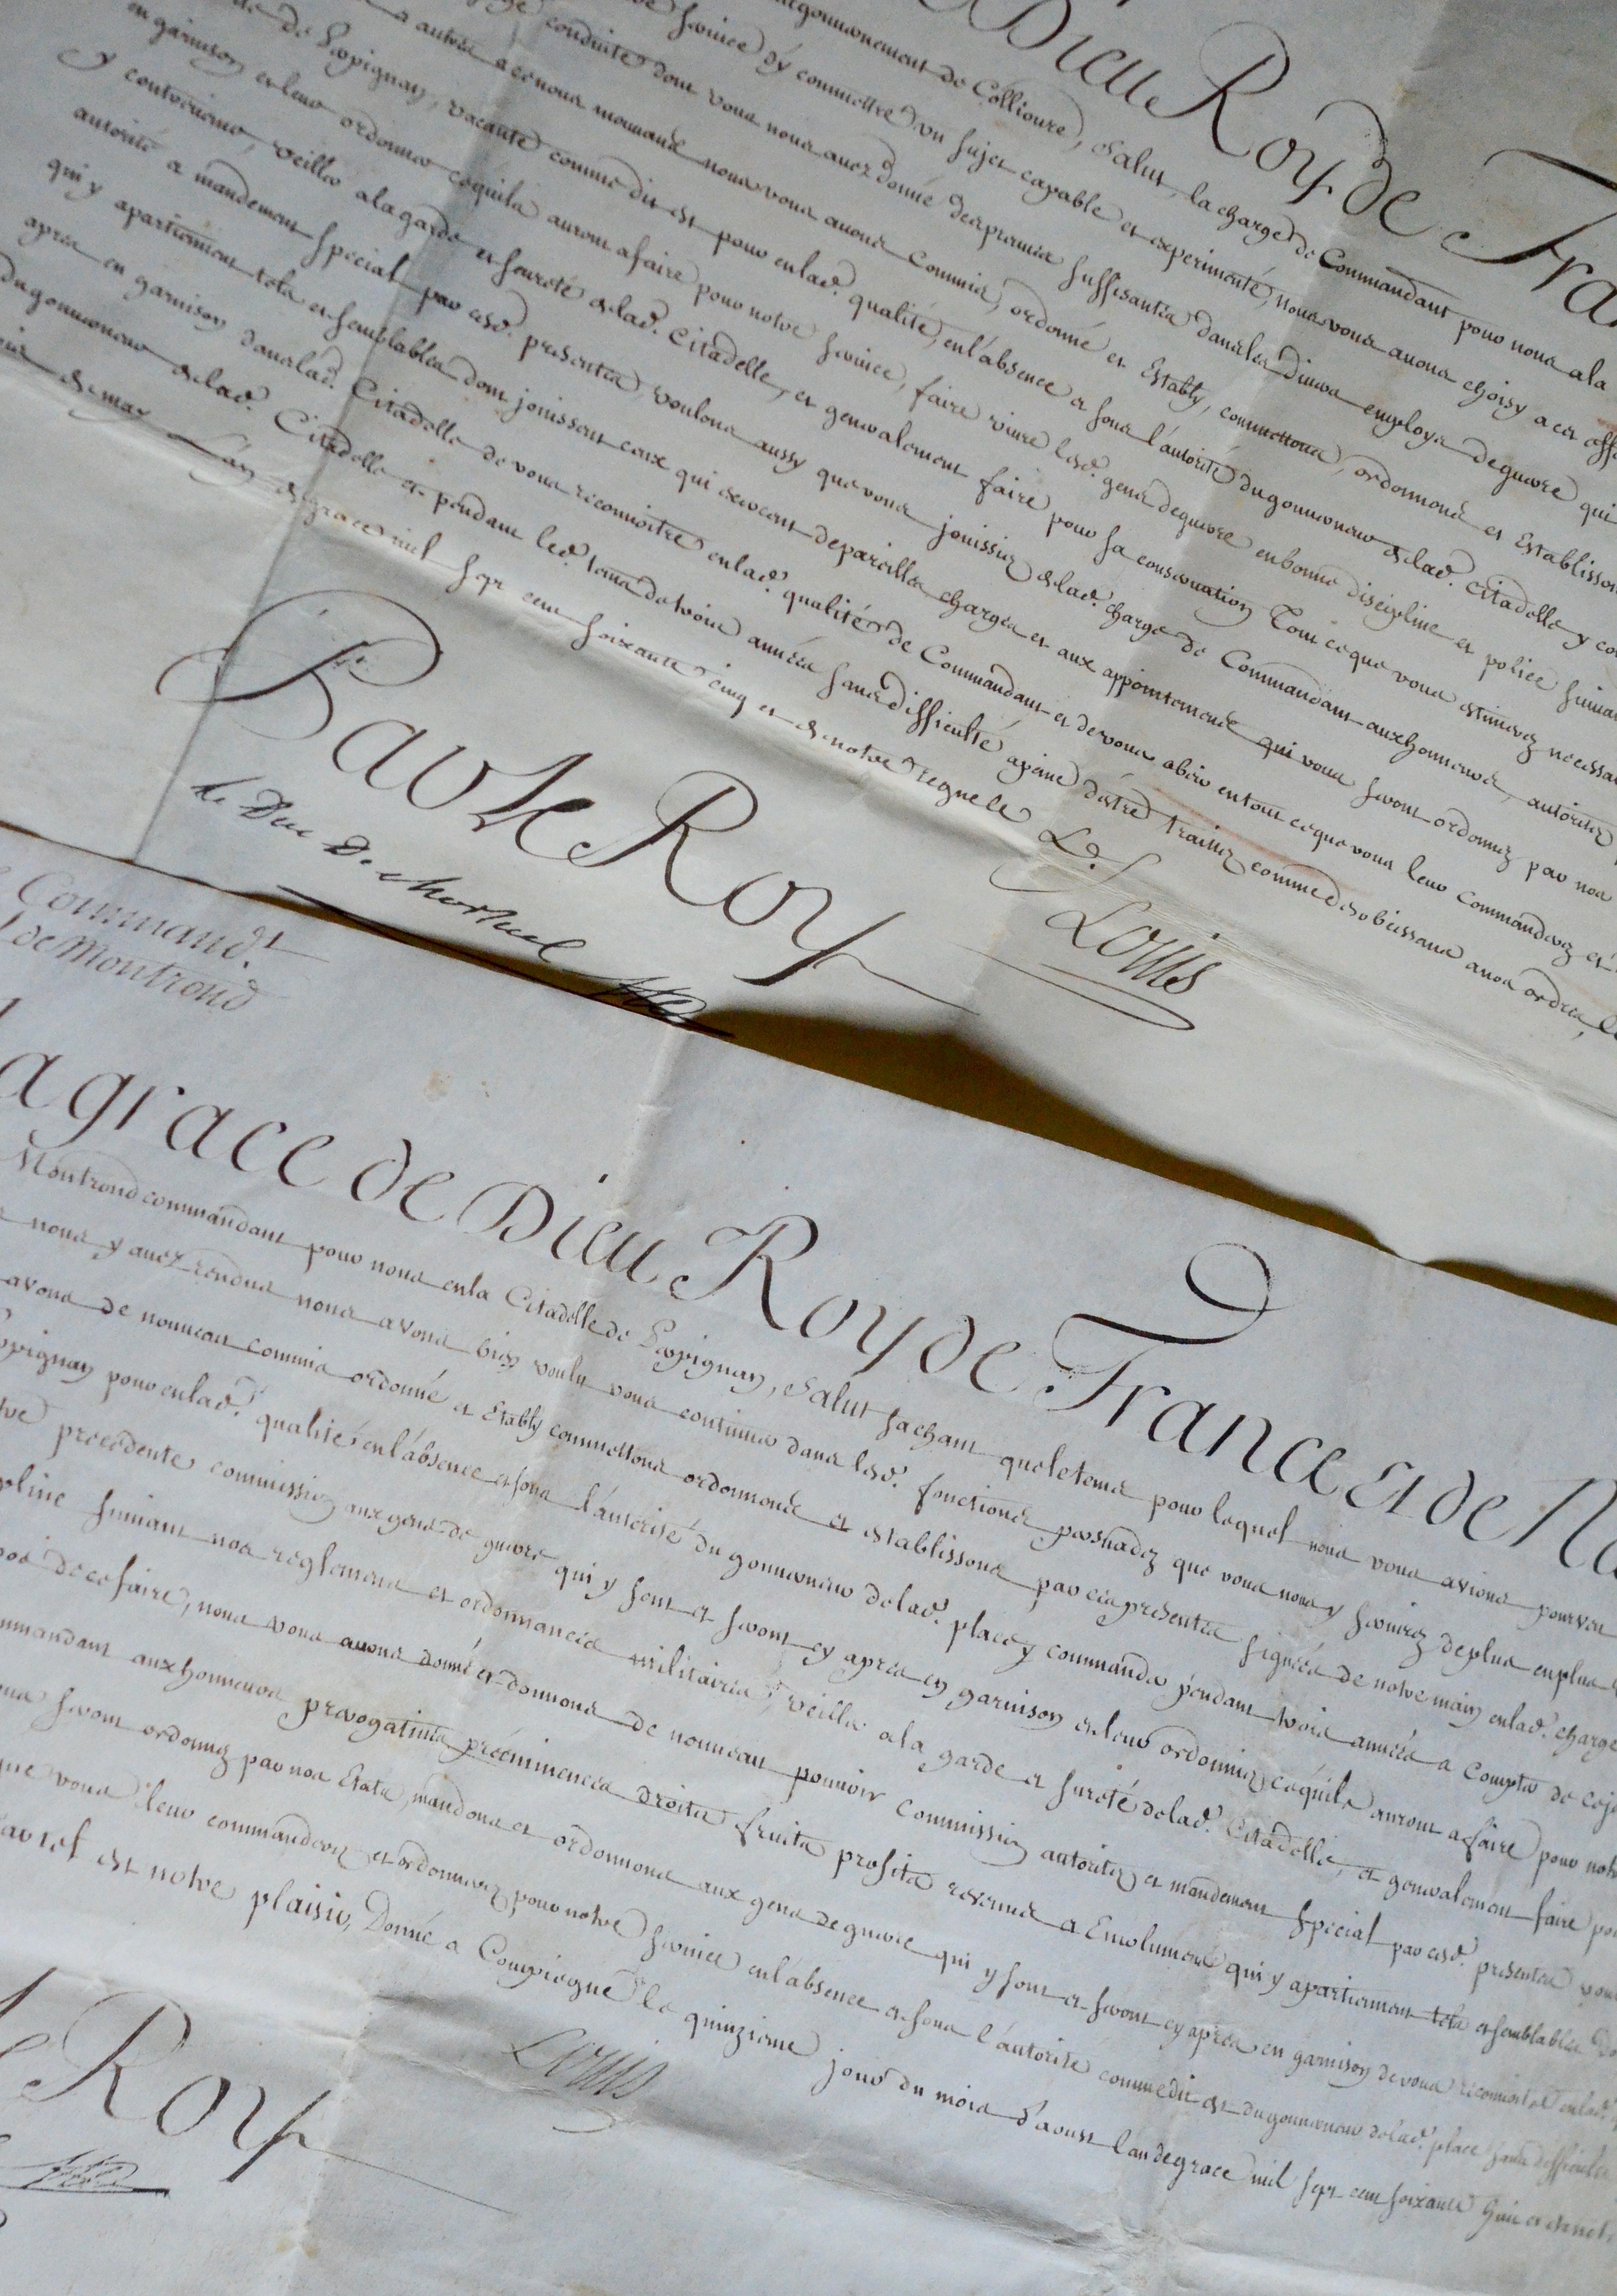 Dieu Roy de Fra
gouvernement de Collioure, Salut, la charge de Commandant pour nous a la
service d'y commettre un sujet capable et experimenté, nous vous avons choisy a cet eff
conduite dont vous nous avez donné des preuves suffisantes dans les divers employs de guerre qui
autres a ce nous mouvans nous vous avons commis, ordonné et Estably, commettons, ordonnons et Establisson
de Perpignan, vacante comme dit est pour en lad. qualité, en l'absence et sous l'autorité du gouverneur de lad. Citadelle y co
en garnison et leur ordonner ce qu'ils auront a faire pour notre service, faire vivre lesd. gens de guerre en bonne discipline et police suivan
y contenues, veiller a la garde et seureté de lad. Citadelle, et generalement faire pour sa conservation Tout ce que vous estimerez necessai
autorité et mandement special par cesd. presentes, voulons aussy que vous jouissiez de lad. charge de Commandant aux honneurs, autoritez
qui y apartiennent tels et semblables dont jouissent ceux qui exercent de pareilles charges et aux appointements qui vous seront ordonnez par nos
apres en garnison dans lad. Citadelle de vous reconnoitre en lad. qualité de Commandant et de vous obeir en tout ce que vous leur commanderez et
du gouverneur de lad. Citadelle et pendant led. tems de trois années sans difficulté a peine d'être traittez comme desobeissans a nos ordres,
de may L'an de grace mil sept cent soixante cinq et de notre regne le L.
Louis
Par le Roy
le Duc De Choiseul
Command.t
de Montrond
a grace de Dieu Roy de France Et de Na
Montrond commandant pour nous en la Citadelle de Perpignan, Salut sachant que le tems pour lequel nous vous avions pourveu
nous y avez rendus nous avons bien voulu vous continuer dans lesd. fonctions persuadez que vous nous y servirez de plus en plus
avons de nouveau commis ordonné et Etably commettons ordonnons et establissons par ces presentes signées de notre main en lad. charge
erpignan pour en lad. qualité en l'absence et sous l'autorité du gouverneur de lad. place y commander pendant trois années a compter de ce j
tre precedente commission aux gens de guerre qui y sont et seront cy apres en garnison et leur ordonniez ce qu'ils auront a faire pour notr
pline suivant nos reglements et ordonnances militaires, veiller a la garde et sureté de lad. Citadelle, et generalement faire po
de ce faire, nous vous avons donné et donnons de nouveau pouvoir commission autoritez et mandement special par cesd. presentes vou
mmandant aux honneurs prerogatives prééminences droits fruits profits revenus et Emoluments qui y apartiennent tels et semblables
seront ordonnez par nos Etats, mandons et ordonnons aux gens de guerre qui y sont et seront cy apres en garnison de vous reconnoitre en lad.
que vous leur commanderez et ordonnerez pour notre service en l'absence et sous l'autorité comme dit est du gouverneur de lad. place sans difficulté
car tel est notre plaisir, Donné a Compiegne le quinzieme jour du mois d'aoust l'an de grace mil sept cent soixante huit et de notre
Louis
le Roy